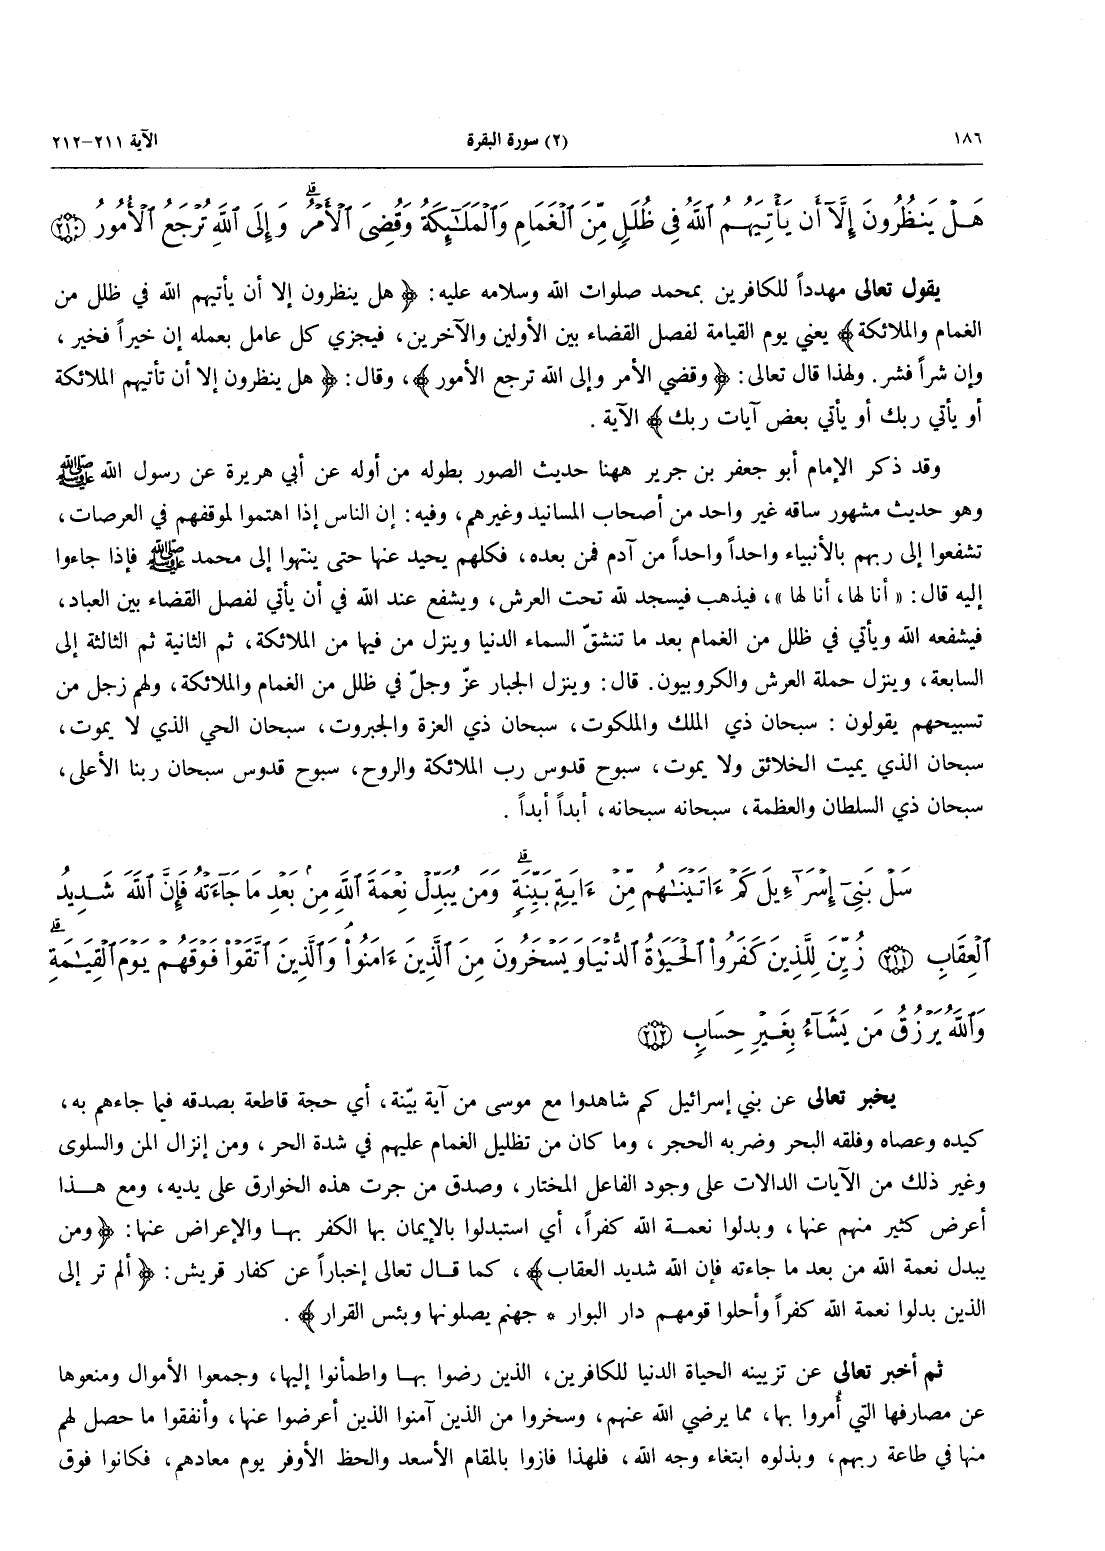 ١٨٦ (٢) سورة البقرة الآية ٢١١-٢١٢
هَلْ يَنظُرُونَ إِلَّآ أَن يَأْتِيَهُمُ ٱللَّهُ فِى ظُلَلٍ مِّنَ ٱلْغَمَامِ وَٱلْمَلَـٰٓئِكَةُ وَقُضِىَ ٱلْأَمْرُ ۚ وَإِلَى ٱللَّهِ تُرْجَعُ ٱلْأُمُورُ ٢١٠
يقول تعالى مهدداً للكافرين بمحمد صلوات الله وسلامه عليه: ﴿ هل ينظرون إلا أن يأتيهم الله في ظلل من
الغمام والملائكة﴾ يعني يوم القيامة لفصل القضاء بين الأولين والآخرين، فيجزي كل عامل بعمله إن خيراً فخير ،
وإن شراً فشر. ولهذا قال تعالى: ﴿ وقضي الأمر وإلى الله ترجع الأمور ﴾، وقال: ﴿ هل ينظرون إلا أن تأتيهم الملائكة
أو يأتي ربك أو يأتي بعض آيات ربك﴾ الآية .
وقد ذكر الإمام أبو جعفر بن جرير ههنا حديث الصور بطوله من أوله عن أبي هريرة عن رسول الله ﷺ
وهو حديث مشهور ساقه غير واحد من أصحاب المسانيد وغيرهم، وفيه: إن الناس إذا اهتموا لموقفهم في العرصات،
تشفعوا إلى ربهم بالأنبياء واحداً واحداً من آدم فمن بعده، فكلهم يحيد عنها حتى ينتهوا إلى محمد ﷺ فإذا جاءوا
إليه قال: « أنا لها، أنا لها »، فيذهب فيسجد لله تحت العرش، ويشفع عند الله في أن يأتي لفصل القضاء بين العباد،
فيشفعه الله ويأتي في ظلل من الغمام بعد ما تنشقّ السماء الدنيا وينزل من فيها من الملائكة، ثم الثانية ثم الثالثة إلى
السابعة، وينزل حملة العرش والكروبيون. قال: وينزل الجبار عزّ وجلّ في ظلل من الغمام والملائكة، ولهم زجل من
تسبيحهم يقولون : سبحان ذي الملك والملكوت، سبحان ذي العزة والجبروت، سبحان الحي الذي لا يموت،
سبحان الذي يميت الخلائق ولا يموت، سبوح قدوس رب الملائكة والروح، سبوح قدوس سبحان ربنا الأعلى،
سبحان ذي السلطان والعظمة، سبحانه سبحانه، أبداً أبداً .
سَلْ بَنِىٓ إِسْرَٰٓءِيلَ كَمْ ءَاتَيْنَـٰهُم مِّنْ ءَايَةٍۭ بَيِّنَةٍ ۗ وَمَن يُبَدِّلْ نِعْمَةَ ٱللَّهِ مِنۢ بَعْدِ مَا جَآءَتْهُ فَإِنَّ ٱللَّهَ شَدِيدُ
ٱلْعِقَابِ ٢١١ زُيِّنَ لِلَّذِينَ كَفَرُوا۟ ٱلْحَيَوٰةُ ٱلدُّنْيَا وَيَسْخَرُونَ مِنَ ٱلَّذِينَ ءَامَنُوا۟ ۘ وَٱلَّذِينَ ٱتَّقَوْا۟ فَوْقَهُمْ يَوْمَ ٱلْقِيَـٰمَةِ ۗ
وَٱللَّهُ يَرْزُقُ مَن يَشَآءُ بِغَيْرِ حِسَابٍ ٢١٢
يخبر تعالى عن بني إسرائيل كم شاهدوا مع موسى من آية بيّنة، أي حجة قاطعة بصدقه فيما جاءهم به،
كيده وعصاه وفلقه البحر وضربه الحجر ، وما كان من تظليل الغمام عليهم في شدة الحر ، ومن إنزال المن والسلوى
وغير ذلك من الآيات الدالات على وجود الفاعل المختار ، وصدق من جرت هذه الخوارق على يديه، ومع هـذا
أعرض كثير منهم عنها، وبدلوا نعمـة الله كفراً، أي استبدلوا بالإيمان بها الكفر بهـا والإعراض عنها: ﴿ومن
يبدل نعمة الله من بعد ما جاءته فإن الله شديد العقاب﴾ ، كما قـال تعالى إخباراً عن كفار قريش: ﴿ ألم تر إلى
الذين بدلوا نعمة الله كفراً وأحلوا قومهـم دار البوار * جهنم يصلونها وبئس القرار ﴾ .
ثم أخبر تعالى عن تزيينه الحياة الدنيا للكافرين، الذين رضوا بهـا واطمأنوا إليها، وجمعوا الأموال ومنعوها
عن مصارفها التي أُمروا بها، مما يرضي الله عنهم، وسخروا من الذين آمنوا الذين أعرضوا عنها، وأنفقوا ما حصل لهم
منها في طاعة ربهم، وبذلوه ابتغاء وجه الله، فلهذا فازوا بالمقام الأسعد والحظ الأوفر يوم معادهم، فكانوا فوق